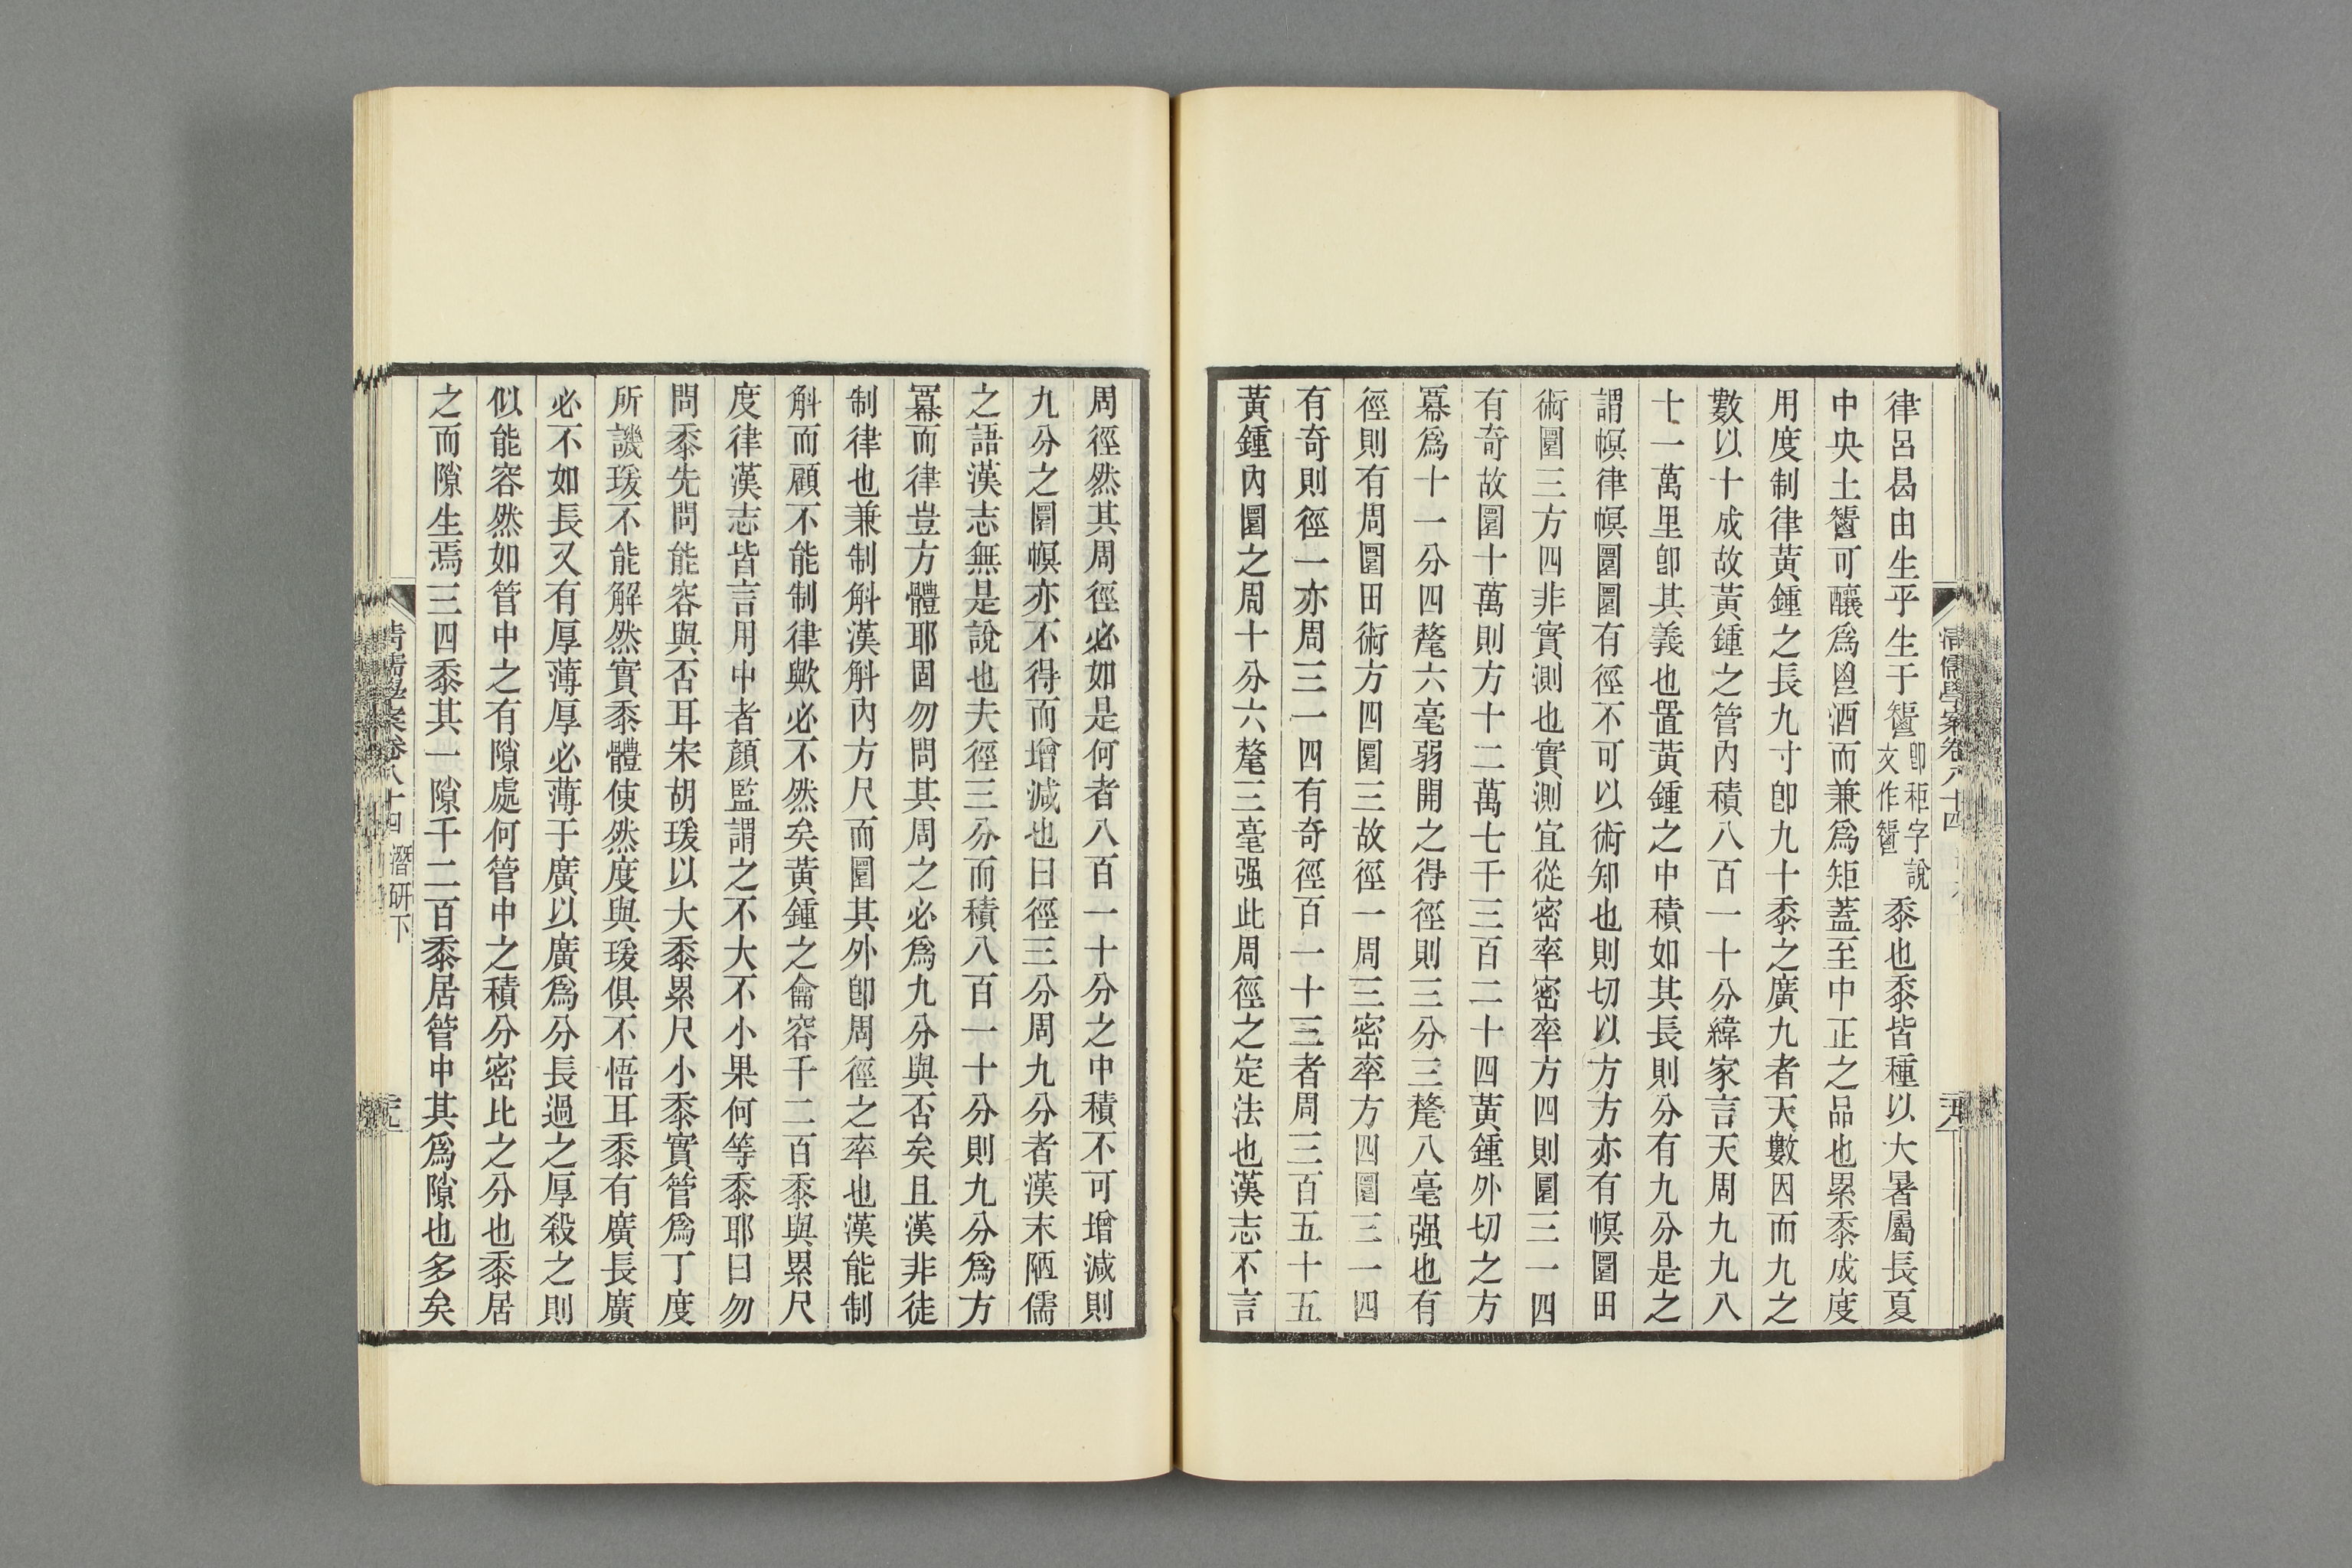 律呂曷由生乎生于𥣫卽秬字說文作𥣫黍也黍皆種以大暑屬長夏
中央土𥣫可釀爲鬯酒而兼爲矩蓋至中正之品也累黍成度
用度制律黃鍾之長九寸卽九十黍之廣九者天數因而九之
數以十成故黃鍾之管內積八百一十分緯家言天周九九八
十一萬里卽其義也置黃鍾之中積如其長則分有九分是之
謂幎律幎圜圜有徑不可以術知也則切以方方亦有幎圜田
術圜三方四非實測也實測宜從密率密率方四則圜三一四
有奇故圜十萬則方十二萬七千三百二十四黃鍾外切之方
冪爲十一分四氂六毫弱開之得徑則三分三氂八毫强也有
徑則有周圜田術方四圜三故徑一周三密率方四圜三一四
有奇則徑一亦周三一四有奇徑百一十三者周三百五十五
黃鍾內圜之周十分六氂三毫强此周徑之定法也漢志不言
周徑然其周徑必如是何者八百一十分之中積不可增減則
九分之圜幎亦不得而增減也曰徑三分周九分者漢末陋儒
之語漢志無是說也夫徑三分而積八百一十分則九分爲方
冪而律豈方體耶固勿問其周之必爲九分與否矣且漢非徒
制律也兼制斛漢斛內方尺而圜其外卽周徑之率也漢能制
斛而顧不能制律歟必不然矣黃鍾之龠容千二百黍與累尺
度律漢志皆言用中者顏監謂之不大不小果何等黍耶曰勿
問黍先問能容與否耳宋胡瑗以大黍累尺小黍實管爲丁度
所譏瑗不能解然實黍體使然度與瑗俱不悟耳黍有廣長廣
必不如長又有厚薄厚必薄于廣以廣爲分長過之厚殺之則
似能容然如管中之有隙處何管中之積分密比之分也黍居
之而隙生焉三四黍其一隙千二百黍居管中其爲隙也多矣
清儒學案卷八十四
清儒學案卷八十四 潛研下